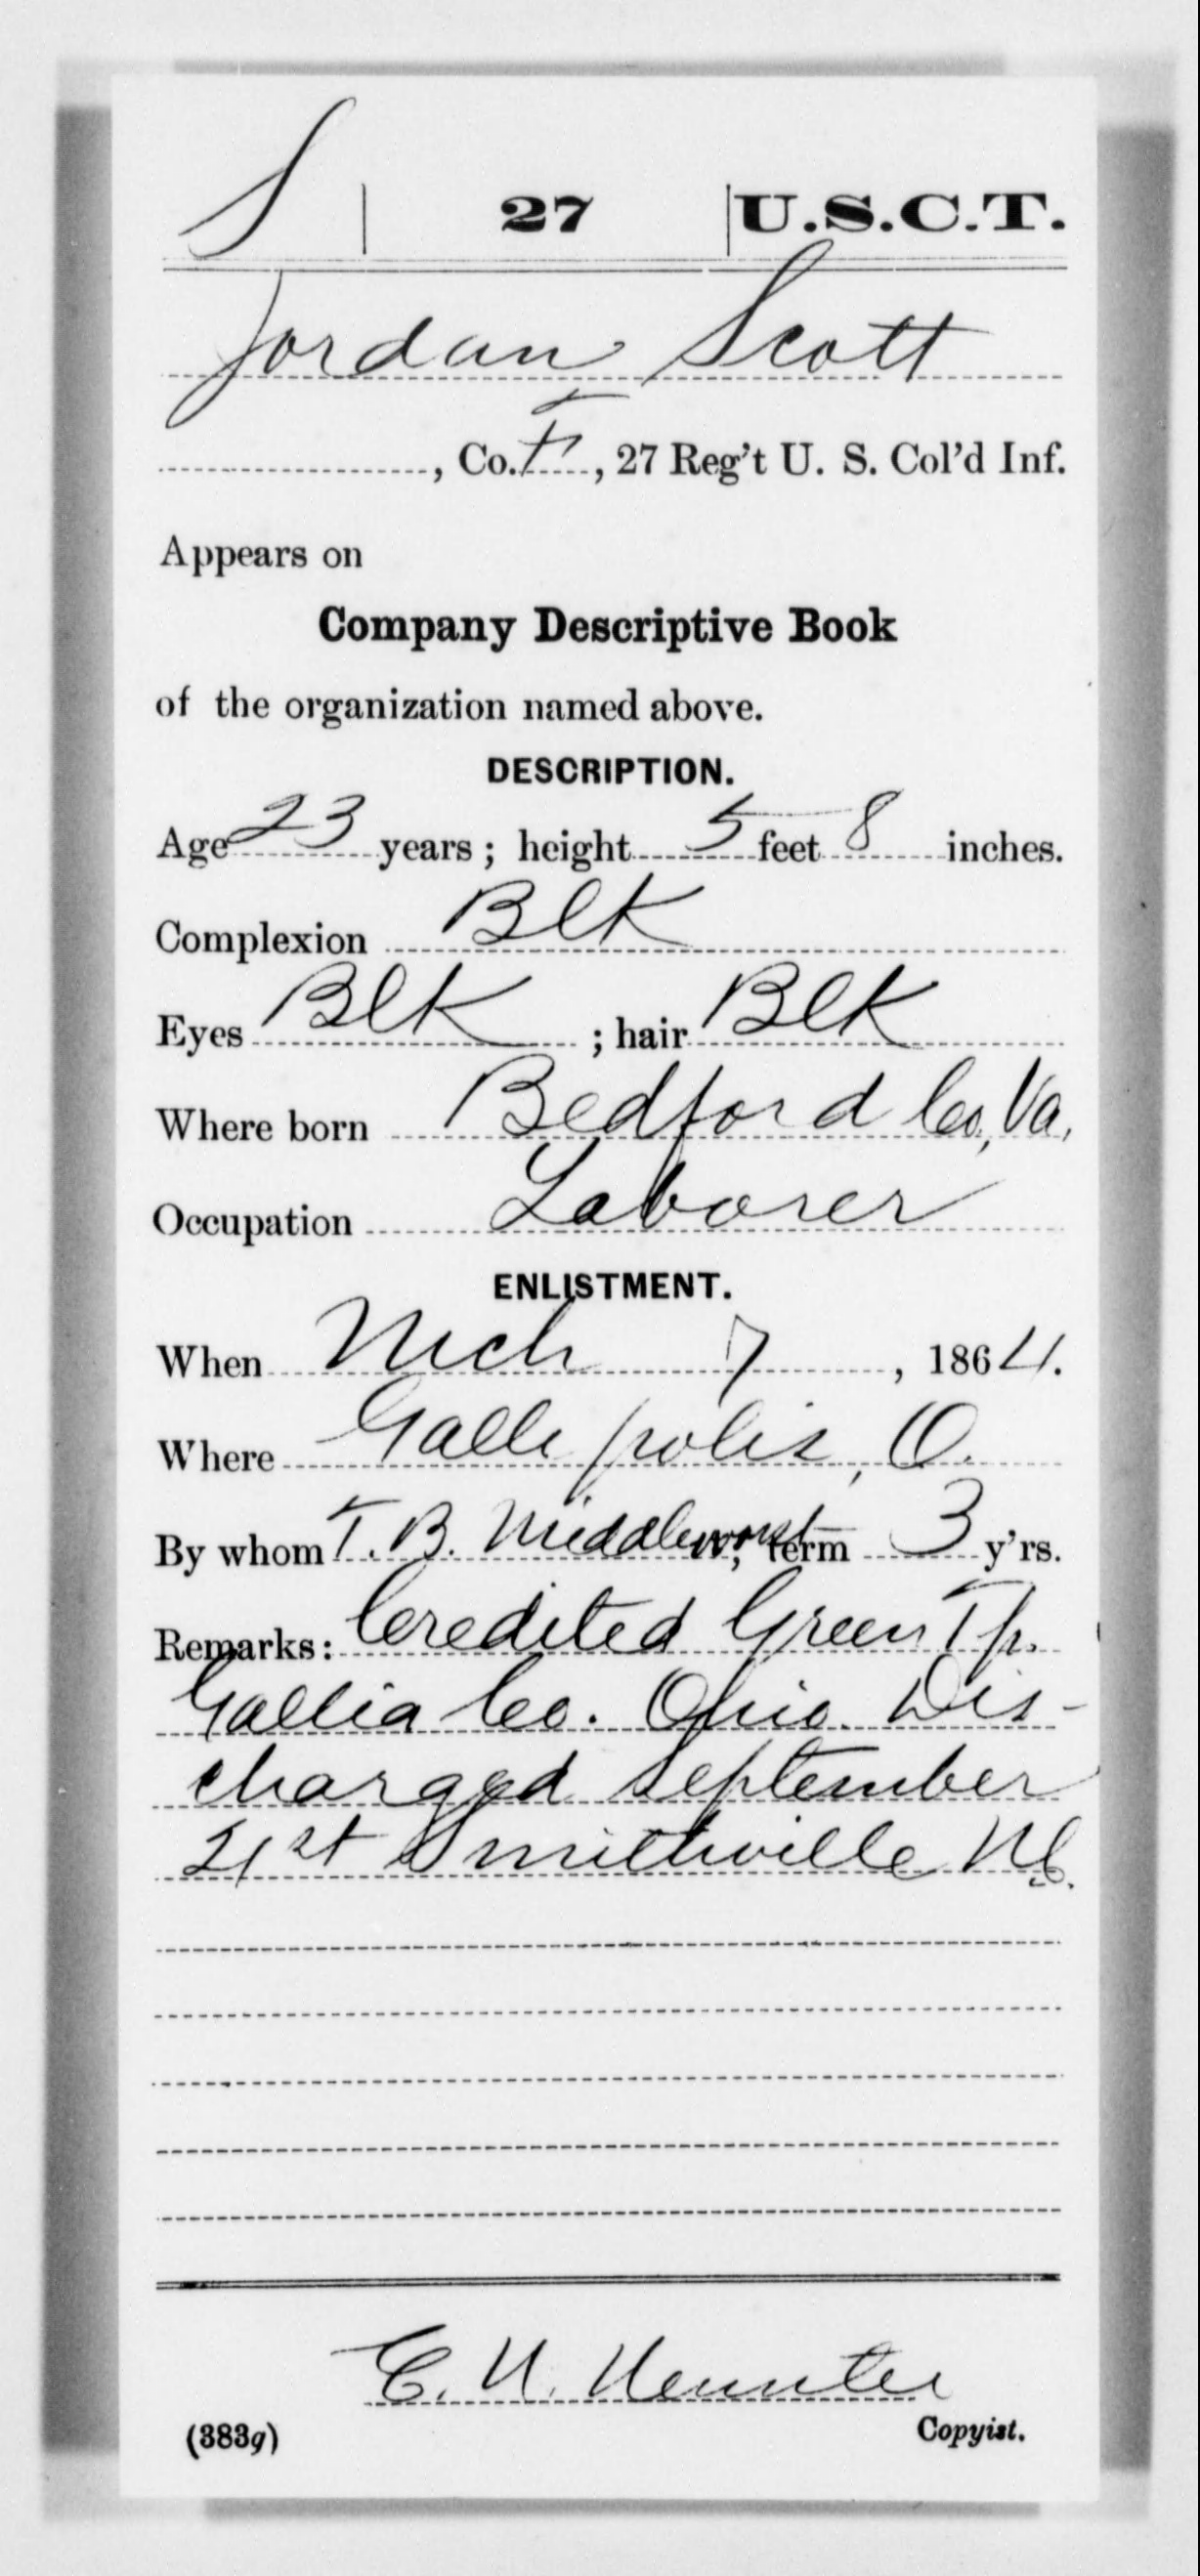 S | 27 | U.S.C.T.
Jordan Scott
, Co. F, 27 Reg't U. S. Col'd Inf.
Appears on
Company Descriptive Book
of the organization named above.
DESCRIPTION.
Age 23 years; height 5 feet 8 inches.
Complexion Blk
Eyes Blk; hair Blk
Where born Bedford Co, Va,
Occupation Laborer
ENLISTMENT.
When Mch 7, 1864.
Where Gallipolis, O.
By whom T. B. Middleworst, term 3 y'rs.
Remarks: Credited Green Tp.
Gallia Co. Ohio. Dis-
charged September
21st Smithville NC.
(383g)
Copyist.